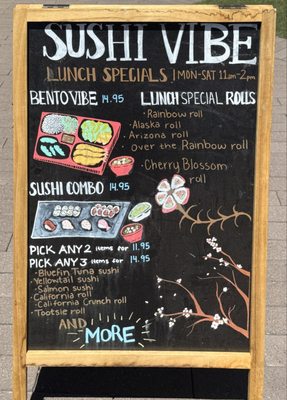 SUSHI VIBE
LUNCH SPECIALS | MON-SAT 11am-2pm
BENTO VIBE 14.95
LUNCH SPECIAL ROLLS
· Rainbow roll
· Alaska roll
· Arizona roll
· Over the Rainbow roll
· Cherry Blossom
roll
SUSHI COMBO 14.95
PICK ANY 2 items for 11.95
PICK ANY 3 items for 14.95
· Bluefin Tuna sushi
· Yellowtail sushi
· Salmon sushi
· California roll
· California Crunch roll
· Tootsie roll
AND
MORE